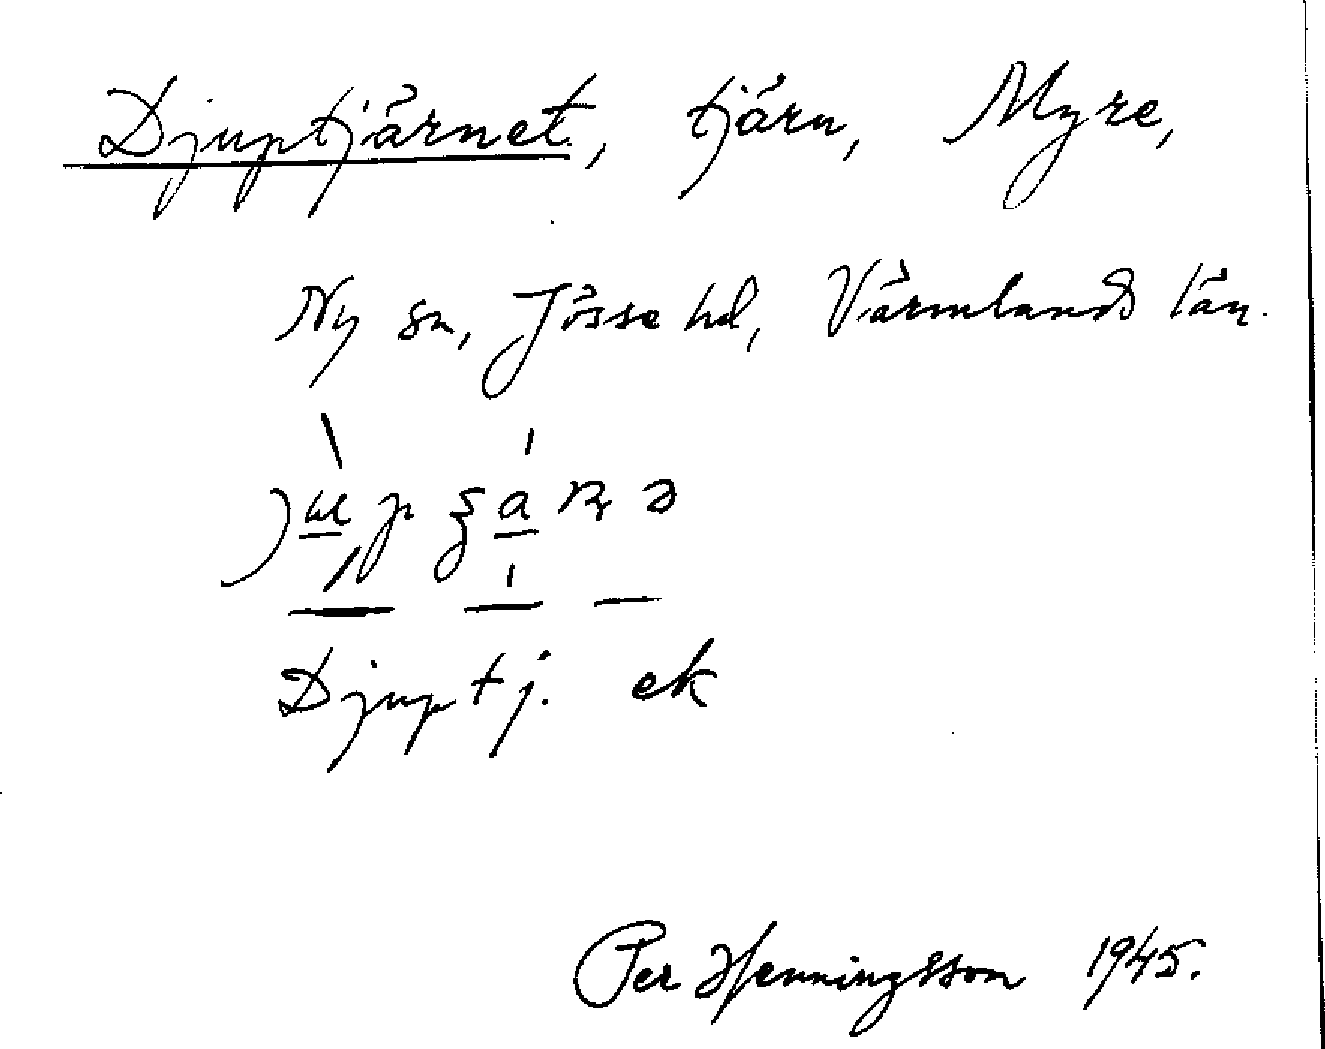 Djuptjärnet, tjärn, Myre,
Ny sn, Jösse hd, Värmlands län.
Djuptj. ek
Per Henningsson 1945.